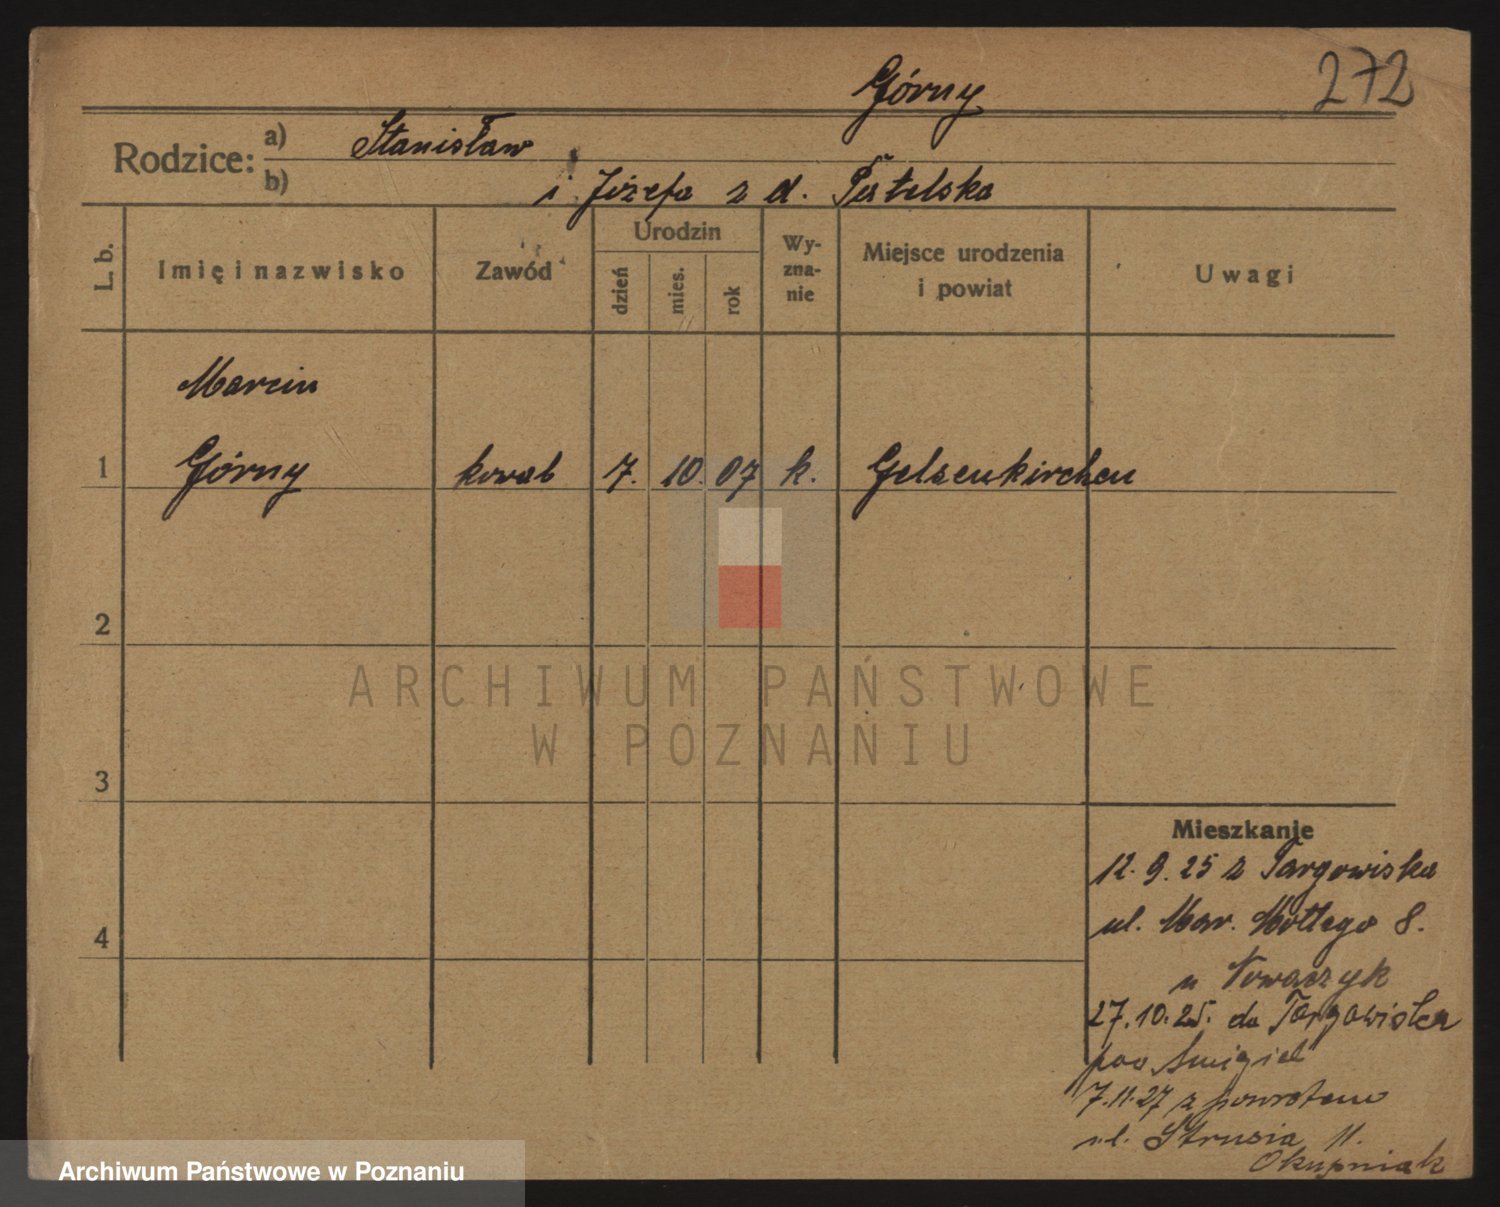 Górny 272
Rodzice: a) Stanisław
b) i Józefa z d. Patelska
L. b. Imię i nazwisko Zawód Urodzin dzień mies. rok Wyznanie Miejsce urodzenia i powiat Uwagi
Marcin
1 Górny kowal 7. 10. 07 k. Gelsenkirchen
2
ARCHIWUM PAŃSTWOWE
W POZNANIU
3
Mieszkanie
12. 9. 25 z Targowiska
4 ul. Mar. Mottego 8.
u Nowaczyk
27. 10. 25. do Targowiska
pow Śmigiel
7. 11. 27 z powrotem
ul. Strusia 11.
Okupniak
Archiwum Państwowe w Poznaniu